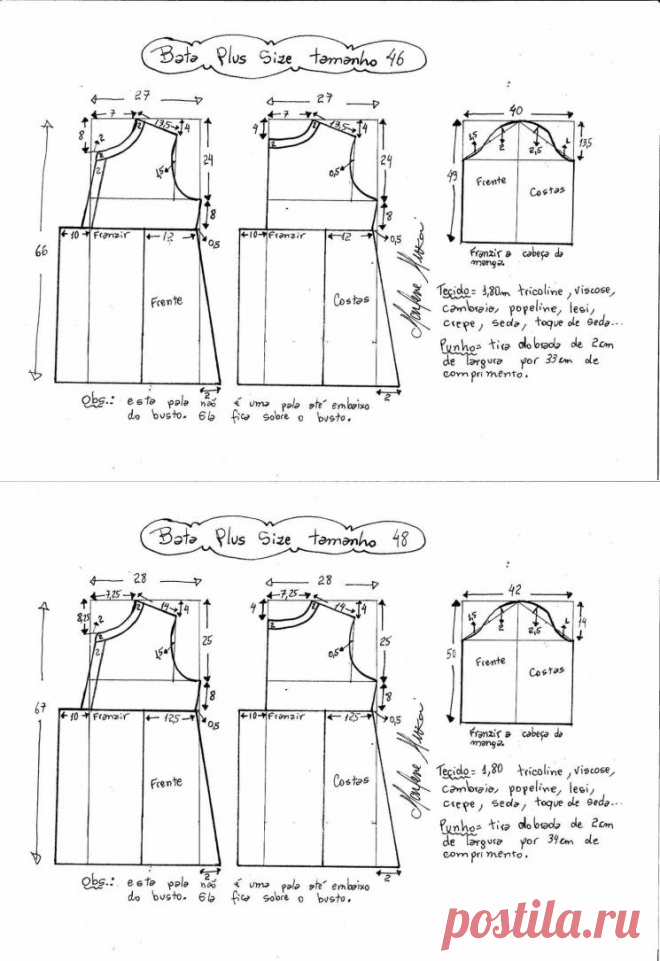 Bata Plus Size tamanho 46
27
7
8
2
2
2
13,5
4
1,5
24
8
0,5
66
10 Franzir 12
Frente
2
27
7
4
2
2
13,5
4
0,5
24
8
0,5
10 Franzir 12
Costas
2
40
1,5
2
2,5
1
13,5
49
Frente
Costas
Franzir a cabeça da
manga.
Marlene Mukai
Tecido= 1,80m tricoline, viscose,
cambraia, popeline, lesi,
crepe, seda, toque de seda...
Punho= tira dobrada de 2cm
de largura por 33cm de
comprimento.
Obs.: esta pala não é uma pala até embaixo
do busto. Ela fica sobre o busto.
Bata Plus Size tamanho 48
28
7,25
8,25
2
2
2
14
4
1,5
25
8
0,5
67
10 Franzir 12,5
Frente
2
28
7,25
4
2
2
14
4
0,5
25
8
0,5
10 Franzir 12,5
Costas
2
42
1,5
2
2,5
1
14
50
Frente
Costas
Franzir a cabeça da
manga.
Marlene Mukai
Tecido= 1,80 tricoline, viscose,
cambraia, popeline, lesi,
crepe, seda, toque de seda...
Punho= tira dobrada de 2cm
de largura por 34cm de
comprimento.
Obs.: esta pala não é uma pala até embaixo
do busto. Ela fica sobre o busto.
postila.ru